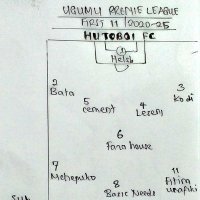 UGUMU PREMIE LEAGUE
FIRST 11 / 2020-25
HUTOBOI FC
1
Helsb
2
Bata
3
Kodi
5
cement
4
Lezeni
6
Fara house
7
Mchepuko
8
Basic Needs
11
Fitim
unafiki
Sub